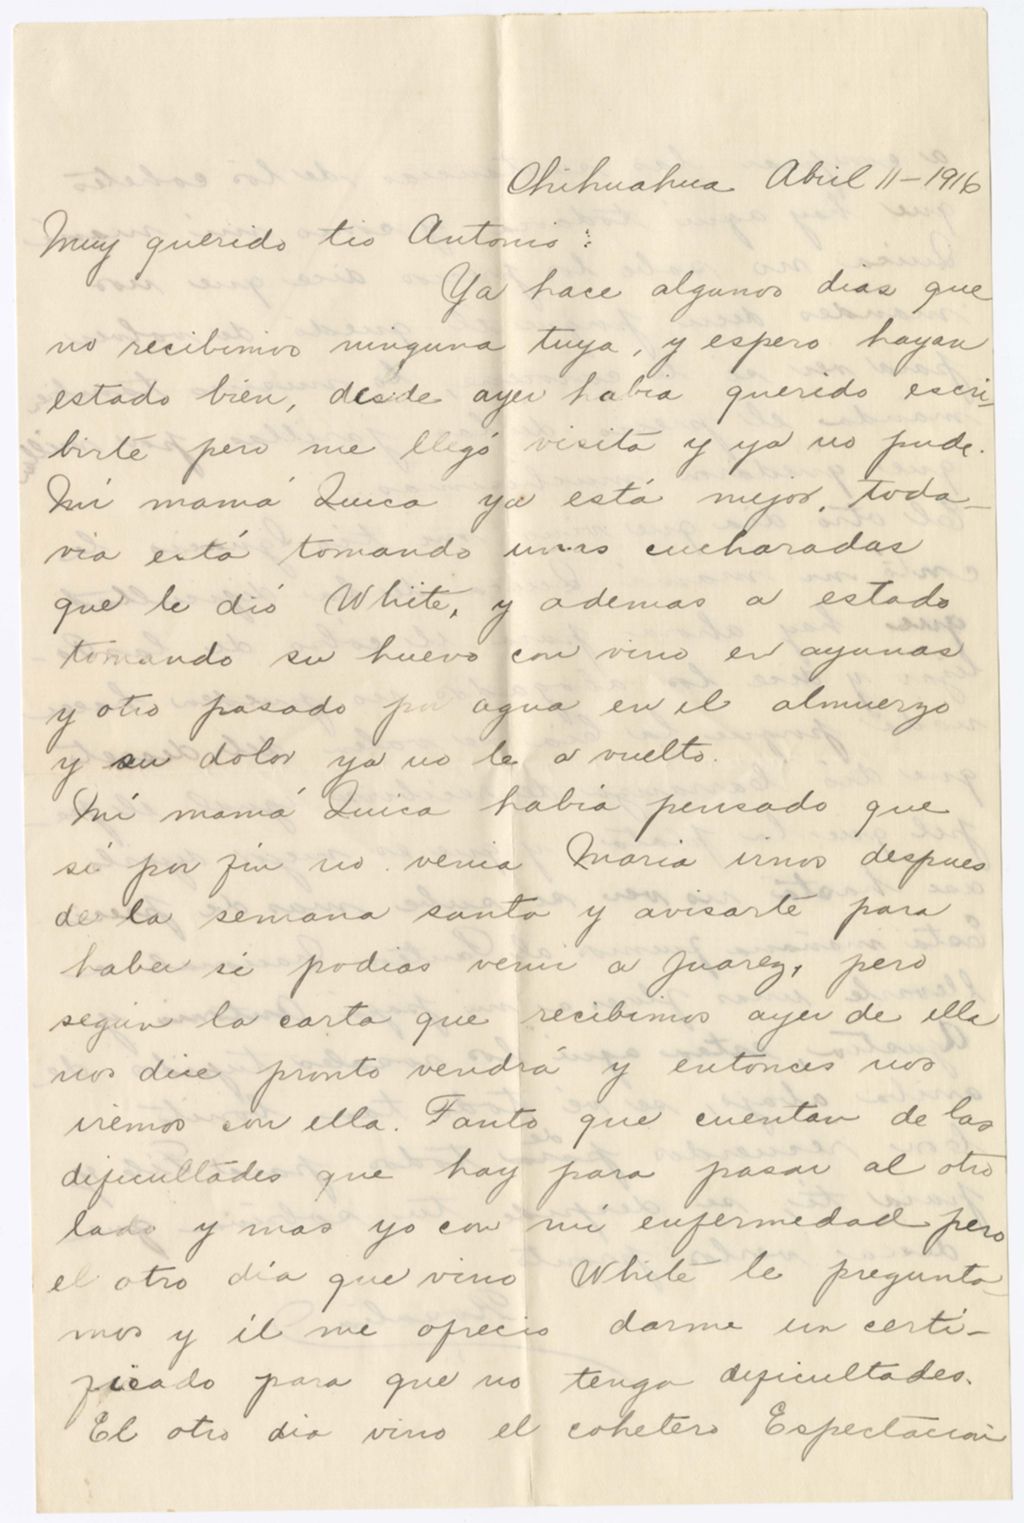 Chihuahua Abril 11-1916
Muy querido tio Antonio:
Ya hace algunos dias que
no recibimos ninguna tuya, y espero hayan
estado bien, desde ayer habia querido escri-
birte pero me llegó visita y ya no pude.
Mi mamá Quica ya está mejor, toda-
via está tomando unas cucharadas
que le dió White, y ademas a estado
tomando su huevo con vino en ayunas
y otro pasado por agua en el almuerzo
y su dolor ya no le a vuelto.
Mi mamá Quica había pensado que
si por fin no venia Maria irnos despues
de la semana santa y avisarte para
haber si podias venir a Juarez, pero
según la carta que recibimos ayer de ella
nos dice pronto vendrá y entonces nos
iremos con ella. Tanto que cuentan de las
dificultades que hay para pasar al otro
lado y mas yo con mi enfermedad pero
el otro día que vino White le pregunta-
mos y él me ofrecio darme un certi-
ficado para que no tenga dificultades.
El otro dia vino el cohetero Espectacion